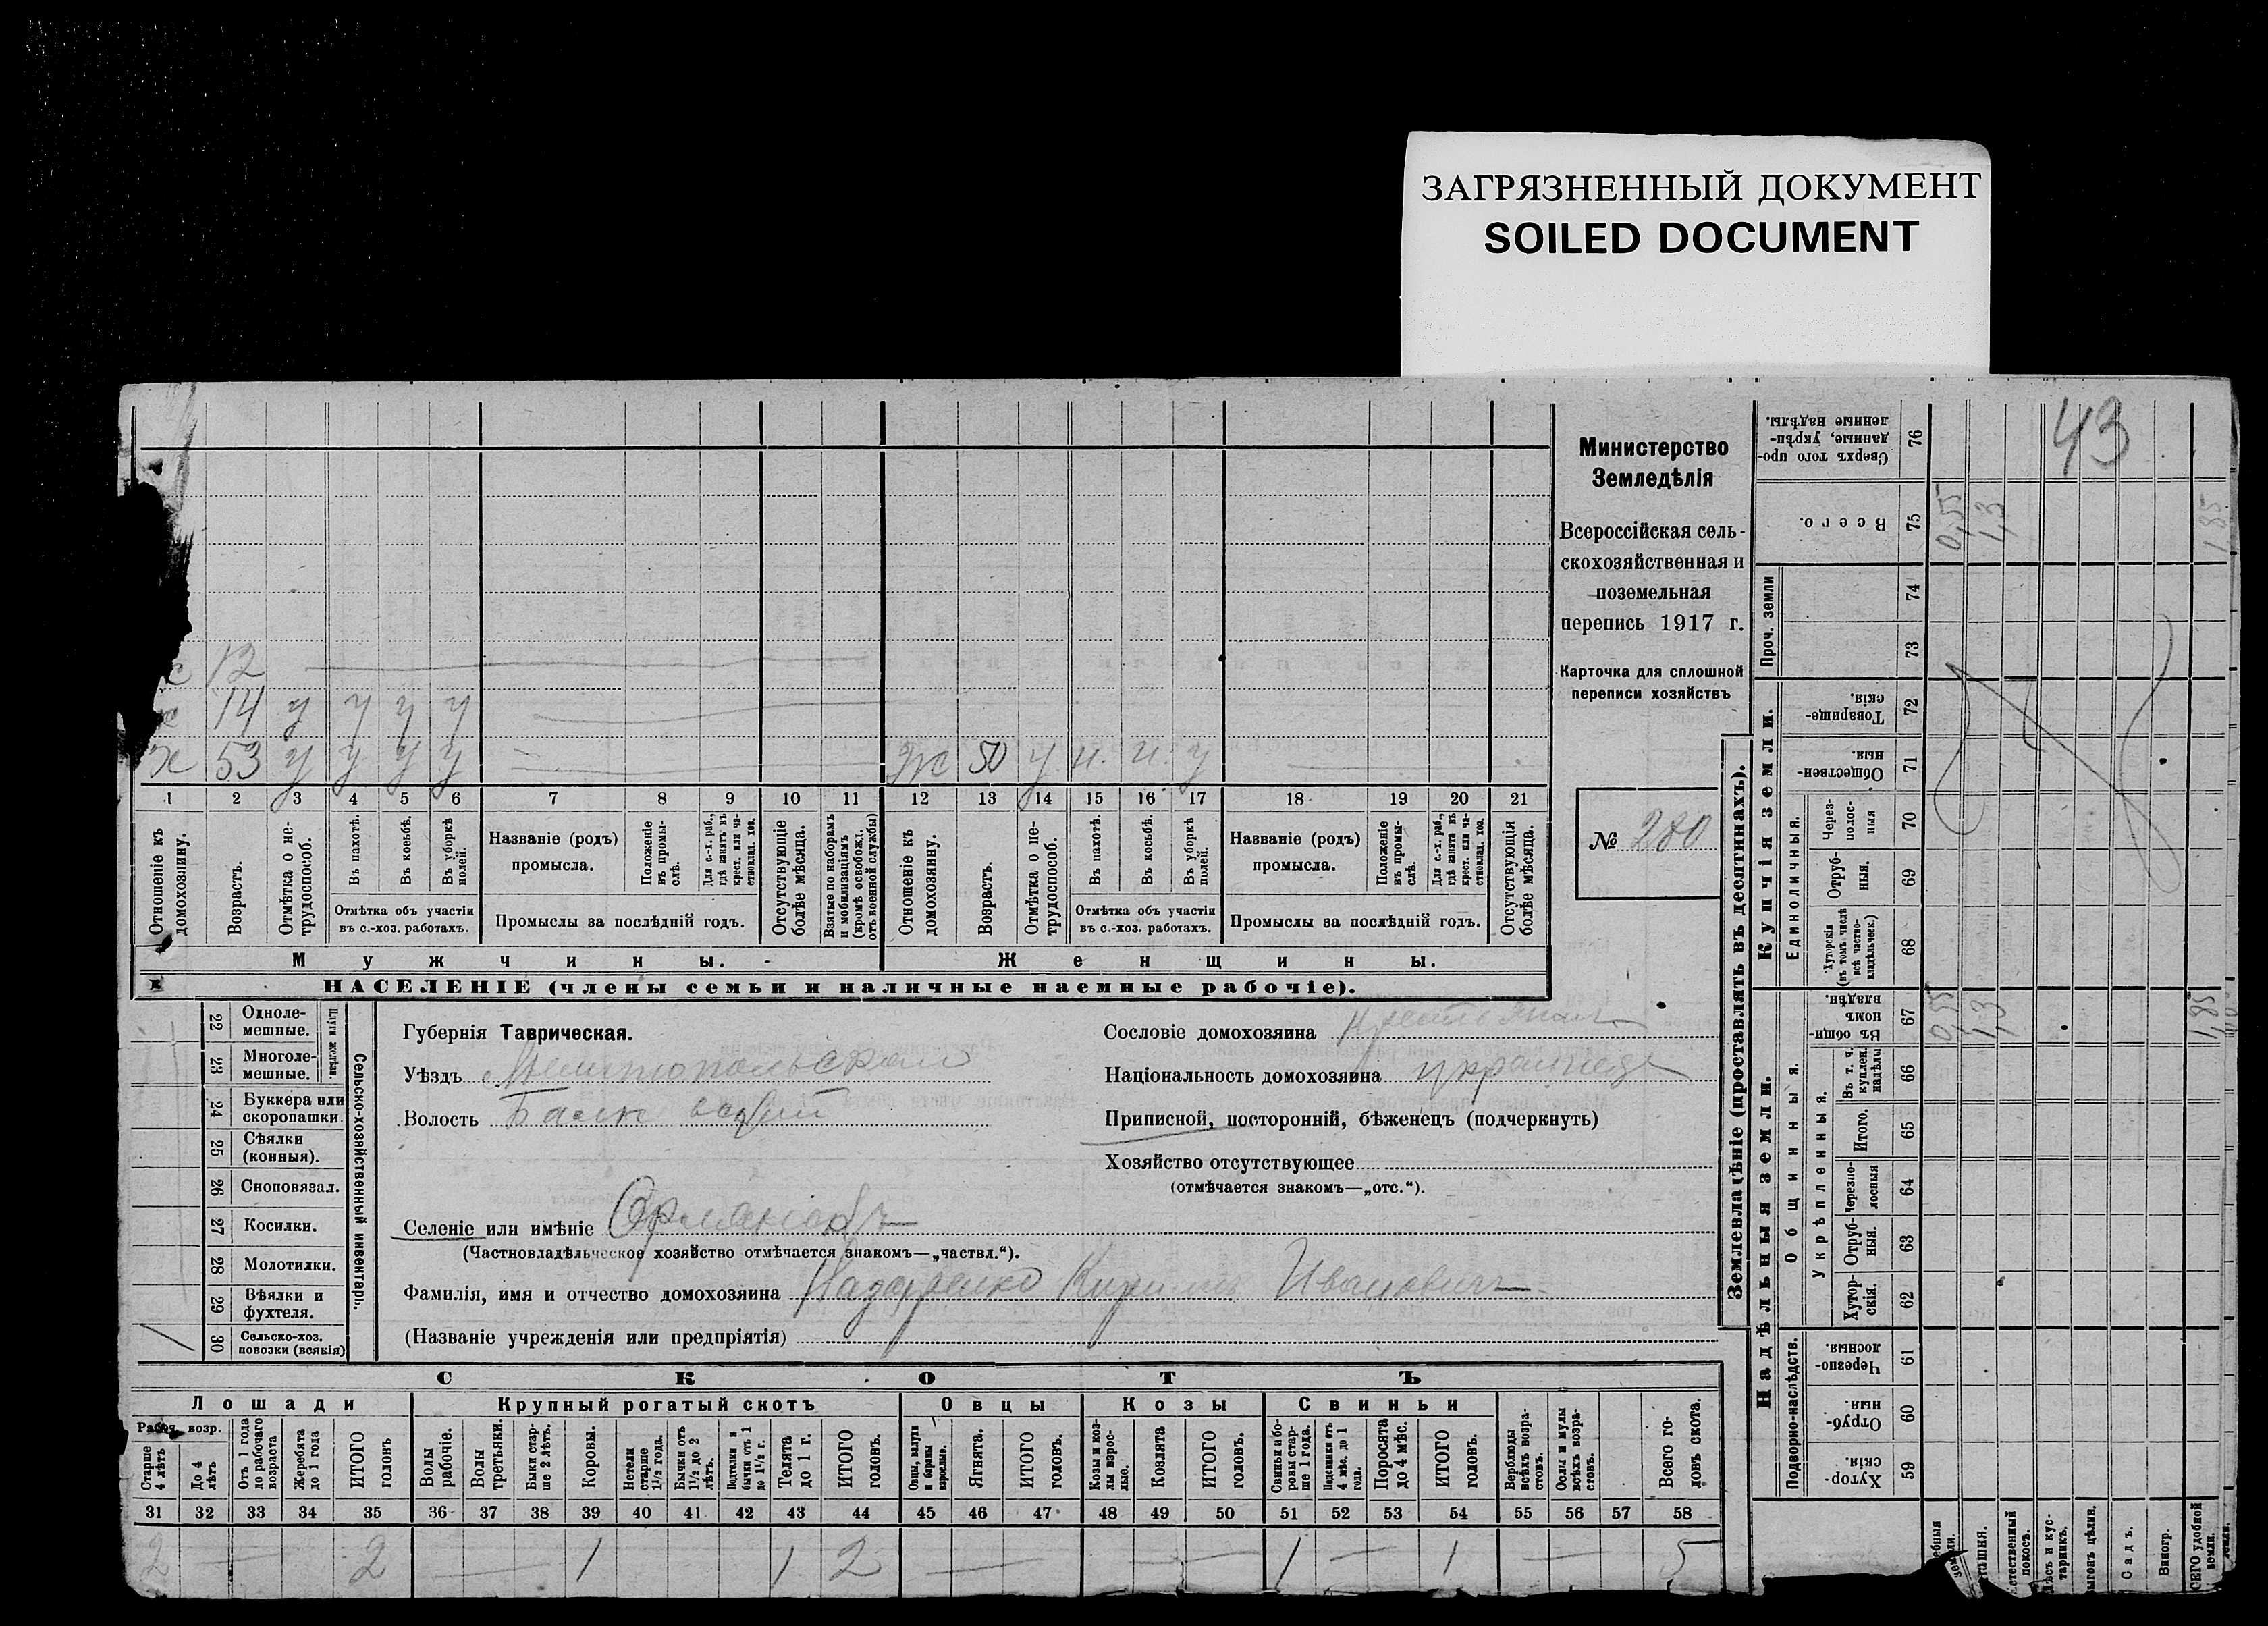 ЗАГРЯЗНЕННЫЙ ДОКУМЕНТ
SOILED DOCUMENT
43
Министерство
Земледѣлія
Всероссійская сель-
скохозяйственная и
поземельная
перепись 1917 г.
Карточка для сплошной
переписи хозяйствъ
№ 280
12
14 у у у у
53 у у у у
50 у н. н. у
1 2 3 4 5 6 7 8 9 10 11 12 13 14 15 16 17 18 19 20 21
Отношеніе къ домохозяину.
Возрастъ.
Отмѣтка о не-трудоспособ.
Въ пахотѣ.
Въ косьбѣ.
Въ уборкѣ полей.
Отмѣтка объ участіи
въ с.-хоз. работахъ.
Названіе (родъ)
промысла.
Положеніе въ промы-слѣ.
Для с.-х. раб., гдѣ занятъ въ крест. или ча-стновлад. хоз.
Промыслы за послѣдній годъ.
Отсутствующіе болѣе мѣсяца.
Взятые по наборамъ и мобилизаціямъ (кромѣ освобожд. отъ военной службы)
Отношеніе къ домохозяину.
Возрастъ.
Отмѣтка о не-трудоспособ.
Въ пахотѣ.
Въ косьбѣ.
Въ уборкѣ полей.
Отмѣтка объ участіи
въ с.-хоз. работахъ.
Названіе (родъ)
промысла.
Положеніе въ промы-слѣ.
Для с.-х. раб., гдѣ занята въ крест. или ча-стновлад. хоз.
Промыслы за послѣдній годъ.
Отсутствующія болѣе мѣсяца.
Мужчины.
Женщины.
НАСЕЛЕНІЕ (члены семьи и наличные наемные рабочіе).
22 Одноле-мешные.
23 Многоле-мешные.
Плуги желѣзн.
24 Буккера или скоропашки.
25 Сѣялки (конныя).
26 Сноповязал.
27 Косилки.
28 Молотилки.
29 Вѣялки и фухтеля.
30 Сельско-хоз. повозки (всякія)
Сельско-хозяйственный инвентарь.
Губернія Таврическая.
Уѣздъ Мелитопольской
Волость
Селеніе или имѣніе
(Частновладѣльческое хозяйство отмѣчается знакомъ—„частвл.“).
Фамилія, имя и отчество домохозяина Ивановичъ
(Названіе учрежденія или предпріятія)
Сословіе домохозяина Крестьянин
Національность домохозяина украинец
Приписной, посторонній, бѣженецъ (подчеркнуть)
Хозяйство отсутствующее
(отмѣчается знакомъ—„отс.“).
СКОТЪ
Лошади
Крупный рогатый скотъ
Овцы
Козы
Свиньи
Рабоч. возр.
Старше 4 лѣтъ
До 4 лѣтъ
Отъ 1 года до рабочаго возраста
Жеребята до 1 года
ИТОГО головъ
Волы рабочіе.
Волы третьяки.
Быки стар-ше 2 лѣтъ.
Коровы.
Нетели старше 1½ года.
Бычки отъ 1½ до 2 лѣтъ.
Подтелки и бычки отъ 1 до 1½ г.
Телята до 1 г.
ИТОГО головъ.
Овцы, валухи и бараны взрослые.
Ягнята.
ИТОГО головъ.
Козы и коз-лы взрос-лые.
Козлята
ИТОГО головъ.
Свиньи и бо-ровы стар-ше 1 года.
Подсвинки отъ 4 мѣс. до 1 года.
Поросята до 4 мѣс.
ИТОГО головъ.
Верблюды всѣхъ возра-стовъ.
Ослы и мулы всѣхъ возра-стовъ.
Всего го-ловъ скота.
31 32 33 34 35 36 37 38 39 40 41 42 43 44 45 46 47 48 49 50 51 52 53 54 55 56 57 58
2 — 2 — 1 1 2 — — 1 — 1 — 5
Землевладѣніе (проставлять въ десятинахъ).
Надѣльныя земли.
Купчія земли.
Проч. земли
Подворно-наслѣдств.
Общинныя.
Укрѣпленныя.
Единоличныя.
59 Хутор-скія.
60 Отруб-ныя.
61 Черезпо-лосныя.
62 Хутор-скія.
63 Отруб-ныя.
64 Черезпо-лосныя
65 Итого.
66 Въ т. ч. куплен. надѣлы
67 Въ общин-номъ владѣн.
68 Хуторскія (въ томъ числѣ всѣ частно-владѣльческ.)
69 Отруб-ныя.
70 Через-полос-ныя
71 Обществен-ныя.
72 Товарище-скія.
73
74
75 Всего.
76 Сверхъ того про-данные, укрѣп-ленные надѣлы.
0,55 1,3 1,85
0,55 1,3 1,85
Лѣсъ и кус-тарникъ.
Садъ.
Виногр.